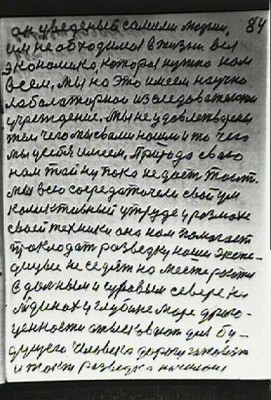 он уведеный самими людми, 84
им не обходимой в жизни вся
экономика, которая нужна нам
всем, мы на это имеем научно
лабалаторное изследователскои
учреждение. Мы не удовлетворены
тем чего мы свами нашли и то чего
мы усебя имеем. Природа свою
нам тайну пока не дает
мы всю сосредаточели свой ум
колективный утруде у розмахе
своей техники она нам помогает
прокладат разведку наши экспе-
диции не седят на месте
с далным и суровым севере на
лдинах у глубине моря драго-
ценности отыскивают для бу-
дущего человека дорогу
и таки разведка начилает